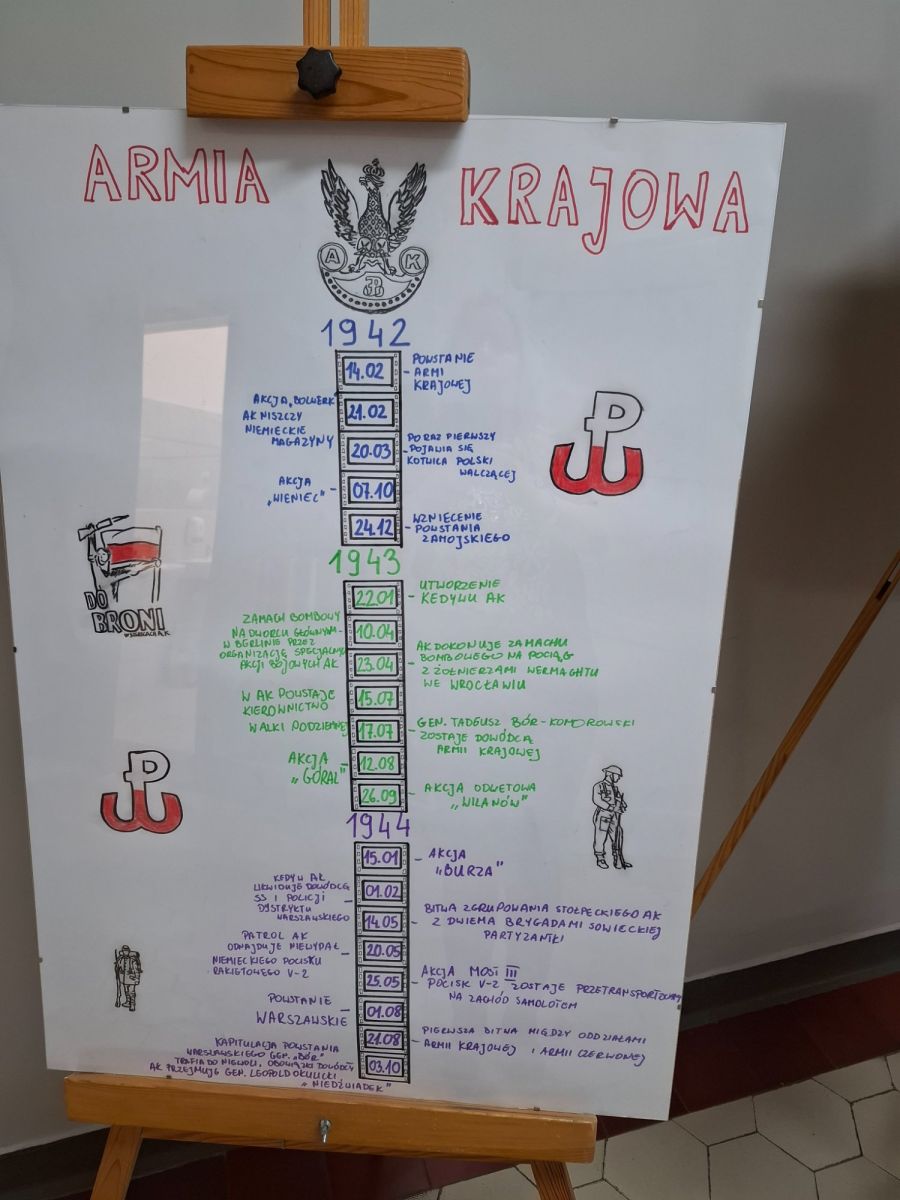 ARMIA KRAJOWA
A K
1942
14.02
POWSTANIE
ARMI
KRAJOWEJ
AKCJA „BOLWERK"
AK NISZCZY
NIEMIECKIE
MAGAZYNY
21.02
20.03
PO RAZ PIERWSZY
POJAWIA SIĘ
KOTWICA POLSKI
WALCZĄCEJ
AKCJA
„WIENIEC"
07.10
24.12
WZNIECENIE
POWSTANIA
ZAMOJSKIEGO
P
W
DO
BRONI
W SZEREGACH A.K.
1943
22.01
UTWORZENIE
KEDYWU AK
ZAMACH BOMBOWY
NA DWORCU GŁÓWNYM
W BERLINIE PRZEZ
ORGANIZACJĘ SPECJALNYCH
AKCJI BOJOWYCH AK
10.04
23.04
AK DOKONUJE ZAMACHU
BOMBOWEGO NA POCIĄG
Z ŻOŁNIERZAMI WERMAGHTU
WE WROCŁAWIU
W AK POWSTAJE
KIEROWNICTWO
WALKI PODZIEMNEJ
15.07
17.07
GEN. TADEUSZ BÓR-KOMOROWSKI
ZOSTAJE DOWÓDCĄ
ARMII KRAJOWEJ
AKCJA
„GÓRAL"
12.08
26.09
AKCJA ODWETOWA
„WILANÓW"
P
W
1944
15.01
AKCJA
„BURZA"
KEDYW AK
LIKWIDUJE DOWÓDCĘ
SS I POLICJI
DYSTRYKTU
WARSZAWSKIEGO
01.02
14.05
BITWA ZGRUPOWANIA STOŁPECKIEGO AK
Z DWIEMA BRYGADAMI SOWIECKIEJ
PARTYZANTKI
PATROL AK
ODNAJDUJE NIEWYPAŁ
NIEMIECKIEGO POCISKU
RAKIETOWEGO V-2
20.05
25.05
AKCJA MOST III
POCISK V-2 ZOSTAJE PRZETRANSPORTOWANY
NA ZAGŁÓD SAMOLOTEM
POWSTANIE
WARSZAWSKIE
01.08
21.08
PIERWSZA BITWA MIĘDZY ODDZIAŁAMI
ARMII KRAJOWEJ I ARMII CZERWONEJ
KAPITULACJA POWSTANIA
WARSZAWSKIEGO GEN. „BÓR"
TRAFIA DO NIEWOLI, OBOWIĄZKI DOWÓDCY
AK PRZEJMUJE GEN. LEOPOLD OKULICKI
„NIEDŹWIADEK"
03.10